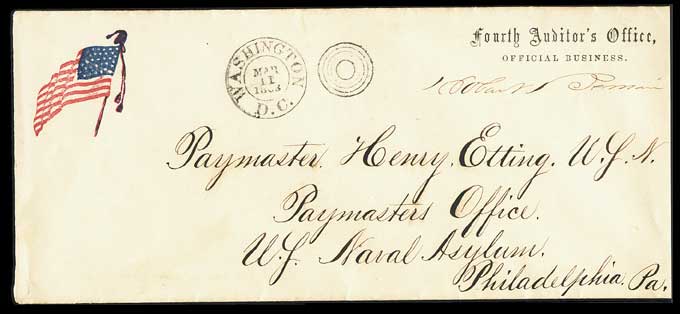 Fourth Auditor's Office,
OFFICIAL BUSINESS.
WASHINGTON
MAR
11
1863
D.C.
Paymaster. Henry. Etting. U.S.N.
Paymasters Office.
U.S. Naval Asylum.
Philadelphia. Pa.